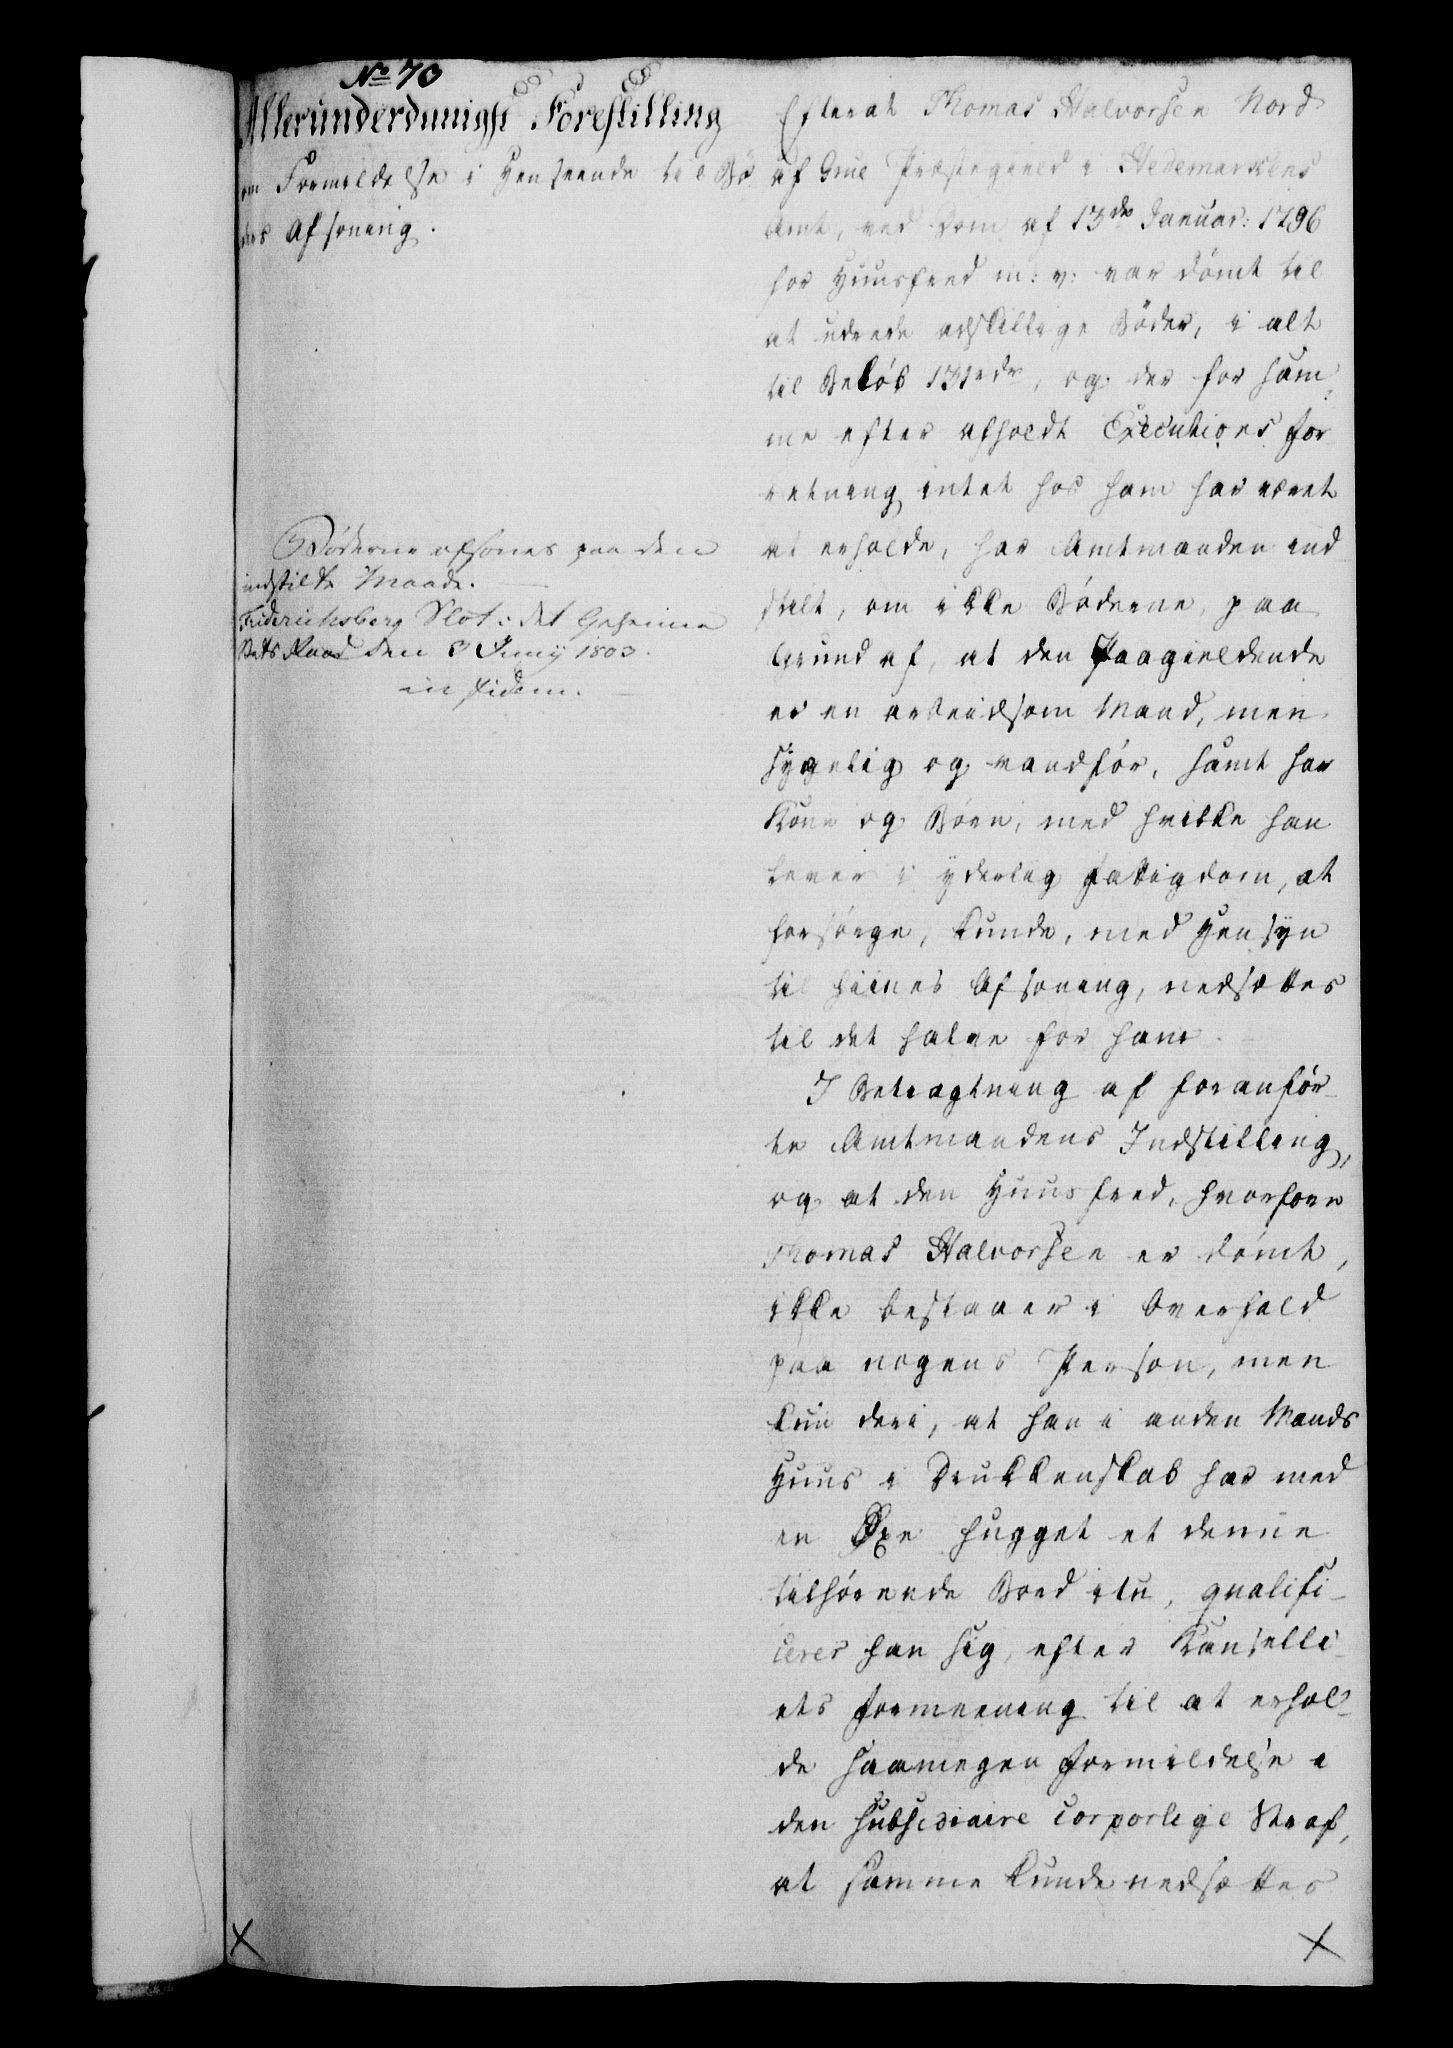 No 70
Allerunderdanigst Forestilling
om Formildelse i Henseende til Bø
ders Afsoning.
Bøderne afsones paa den
indstilte Maade.
Friderichsberg Slot i det Geheime
Stats Raad den 3 Juny 1803.
in fidem.
Efterat Thomas Halvorsen Nord
af Grue Præstegield i Hedemarkens
Amt, ved Dom af 13de Januar: 1796
for Huusfred m: v: var dømt til
at udrede adskillige Bøder, i alt
til Beløb 131 rdr, og der for sam¬
me efter afholdt Executions for
retning intet hos ham har været
at erholde, har Amtmanden ind
stilt, om ikke Bøderne, paa
Grund af, at den Paagieldende
er en arbeidsom Mand, men
sygelig og vandfør, samt har
Kone og Børn, med hvilke han
lever i yderlig Fattigdom, at
forsørge, kunde, med Hensyn
til hiines Afsoning, nedsættes
til det halve for ham.
I Betragtning af foranfør¬
te Amtmandens Indstilling,
og at den Huusfred, hvorfore
Thomas Halvorsen er dømt,
ikke bestaaer i Overfald
paa nogens Person, men
kun deri, at han i anden Mands
Huus i Drukkenskab har med
en Øxe hugget et denne
tilhørende Bord itu, qualifi¬
cerer han sig, efter Kanselli
ets Formeening til at erhol¬
de saamegen Formildelse i
den subsidiaire corporlige Straf,
at samme kunde nedsættes